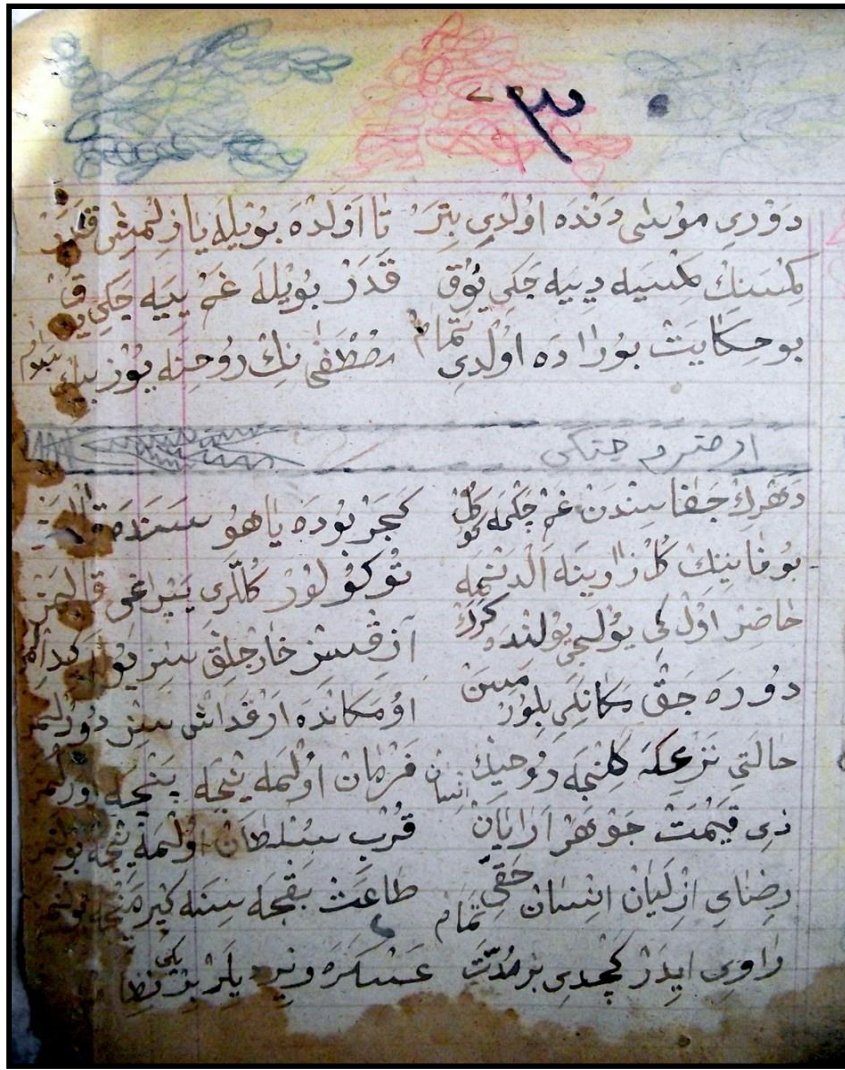 ٣
دَوْرِي مُوسٰى دَنْدَه اُولْدِي بِتَرْ تَا اَزَلْدَه بُويْلَه يَازِلْمِشْ قَدَرْ
كِمْسَنِكْ كِمْسَيه دِييَه جَكِي يُوقْ قَدَرْ بُويْلَه غَمْ يِييَه جَكِي يُوقْ
بو حِكَايَتْ بُورَادَه اُولْدِي تَمَامْ مُصْطَفٰى نِكْ رُوحِنَه يُوزْ بِيكْ سَلَامْ
دَهْرِكْ جَفَاسِنْدَنْ غَمْ چَكْمَه كَچَرْ بُودَه يَاهُو سَنَدَه قَالْمَزْ
بُو فَانِينِكْ كُلْزَارِينَه اَلْدَنْمَه تُوكُولُورْ كُلْلَرِي يَپْرَاغِى قَالْمَزْ
حَاضِرْ اُولْ كِي يُولْجِي يُولِنْدَه كَرَكْ آزِقْسِزْ خَارْجِلِقْ سِزْ يُولَه
دُورَه جَقْ مَكَانِكِي بِلُورْ مِسِنْ اُو مَكَانْدَه اَرْقَدَاشْ سِزْ
حَالَتِي نَزْعِكَه كِلِنْجَه رُوحِيكْ فَرْمَانْ اُولْمَه يِنْجَه
ذِى قِيمَتْ جَوْهَرْ اَرَايَانْ قُرْبِ سُلْطَانْ اُولْمَه يِنْجَه
رِضَايِ ازِلَيَانْ اِنْسَانْ حَقِّي طَاعَتْ بَقْچَه سِنَه كِيرْمَه يِنْجَه
رَاوِي اَيِدَرْ كَچْدِي بِرْ مُدَّتْ تَمَامْ عَسْكَرَه وِيرْدِيلَرْ بِرْ يَكِي نِظَامْ